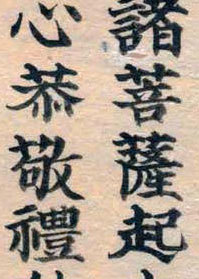 諸菩薩起
心恭敬禮